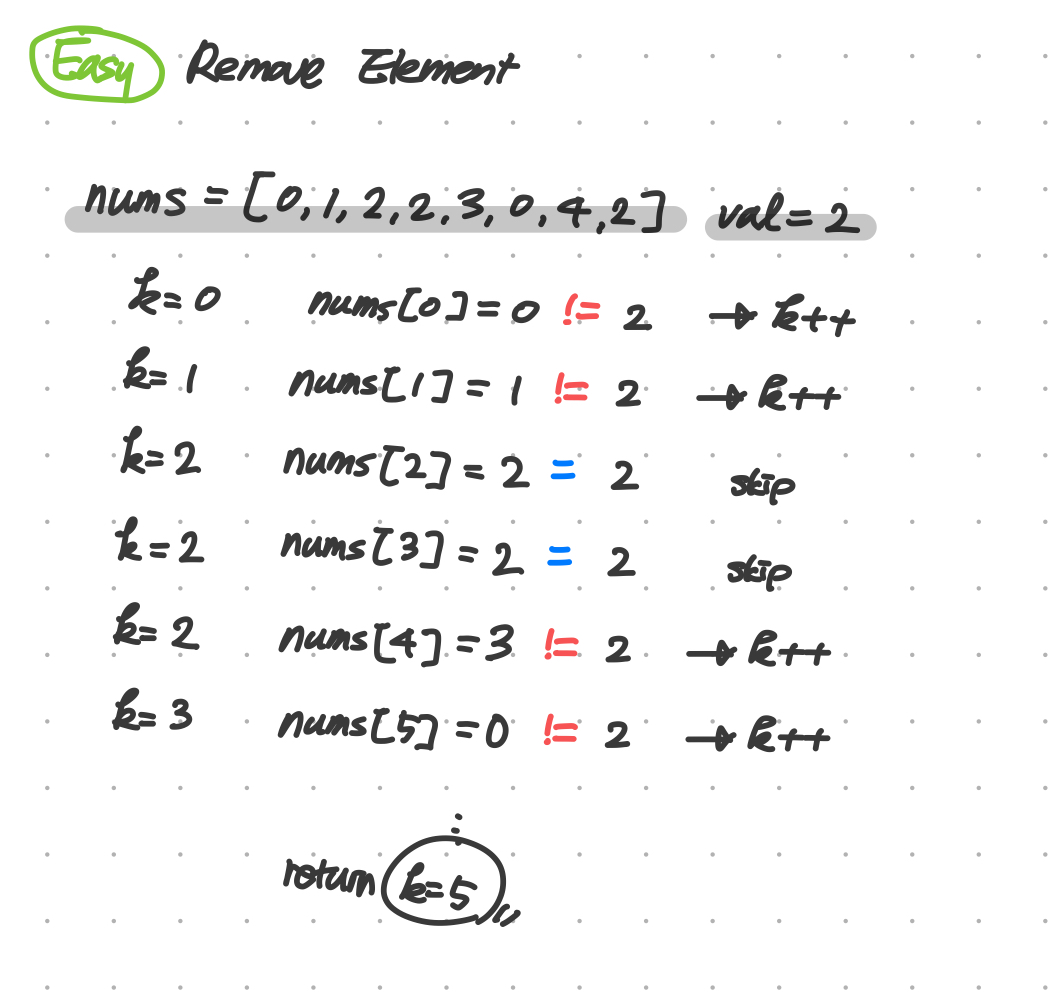 Easy Remove Element
nums = [0,1,2,2,3,0,4,2] val = 2
k=0 nums[0] = 0 != 2 → k++
k=1 nums[1] = 1 != 2 → k++
k=2 nums[2] = 2 = 2 skip
k=2 nums[3] = 2 = 2 skip
k=2 nums[4] = 3 != 2 → k++
k=3 nums[5] = 0 != 2 → k++
⋮
return k=5